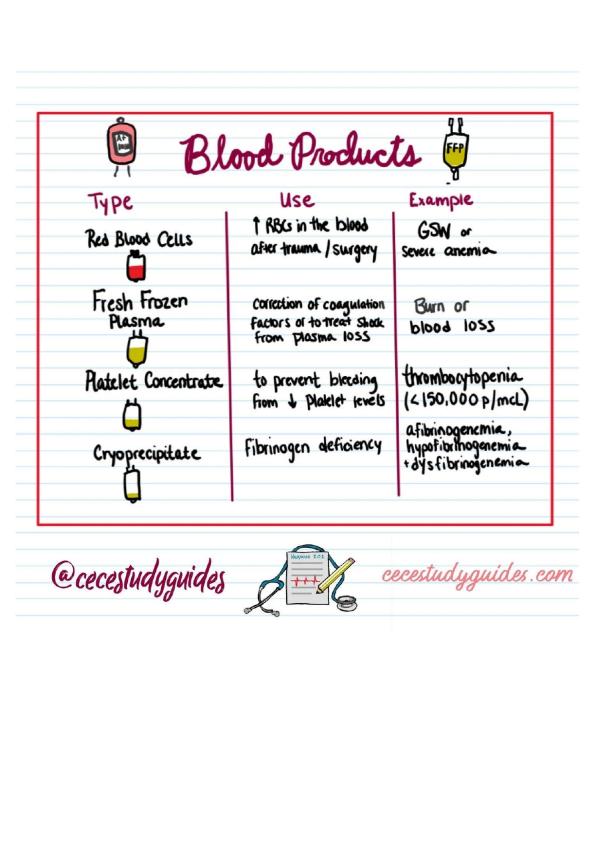 Blood Products
FFP
Type
Use
Example
Red Blood Cells
↑ RBCs in the blood
after trauma / surgery
GSW or
severe anemia
Fresh Frozen
Plasma
correction of coagulation
factors or to treat shock
from plasma loss
Burn or
blood loss
Platelet Concentrate
to prevent bleeding
from ↓ Platelet levels
thrombocytopenia
(<150,000 p/mcL)
Cryoprecipitate
Fibrinogen deficiency
afibrinogenemia,
hypofibrinogenemia
+ dysfibrinogenemia
@cecestudyguides
cecestudyguides.com